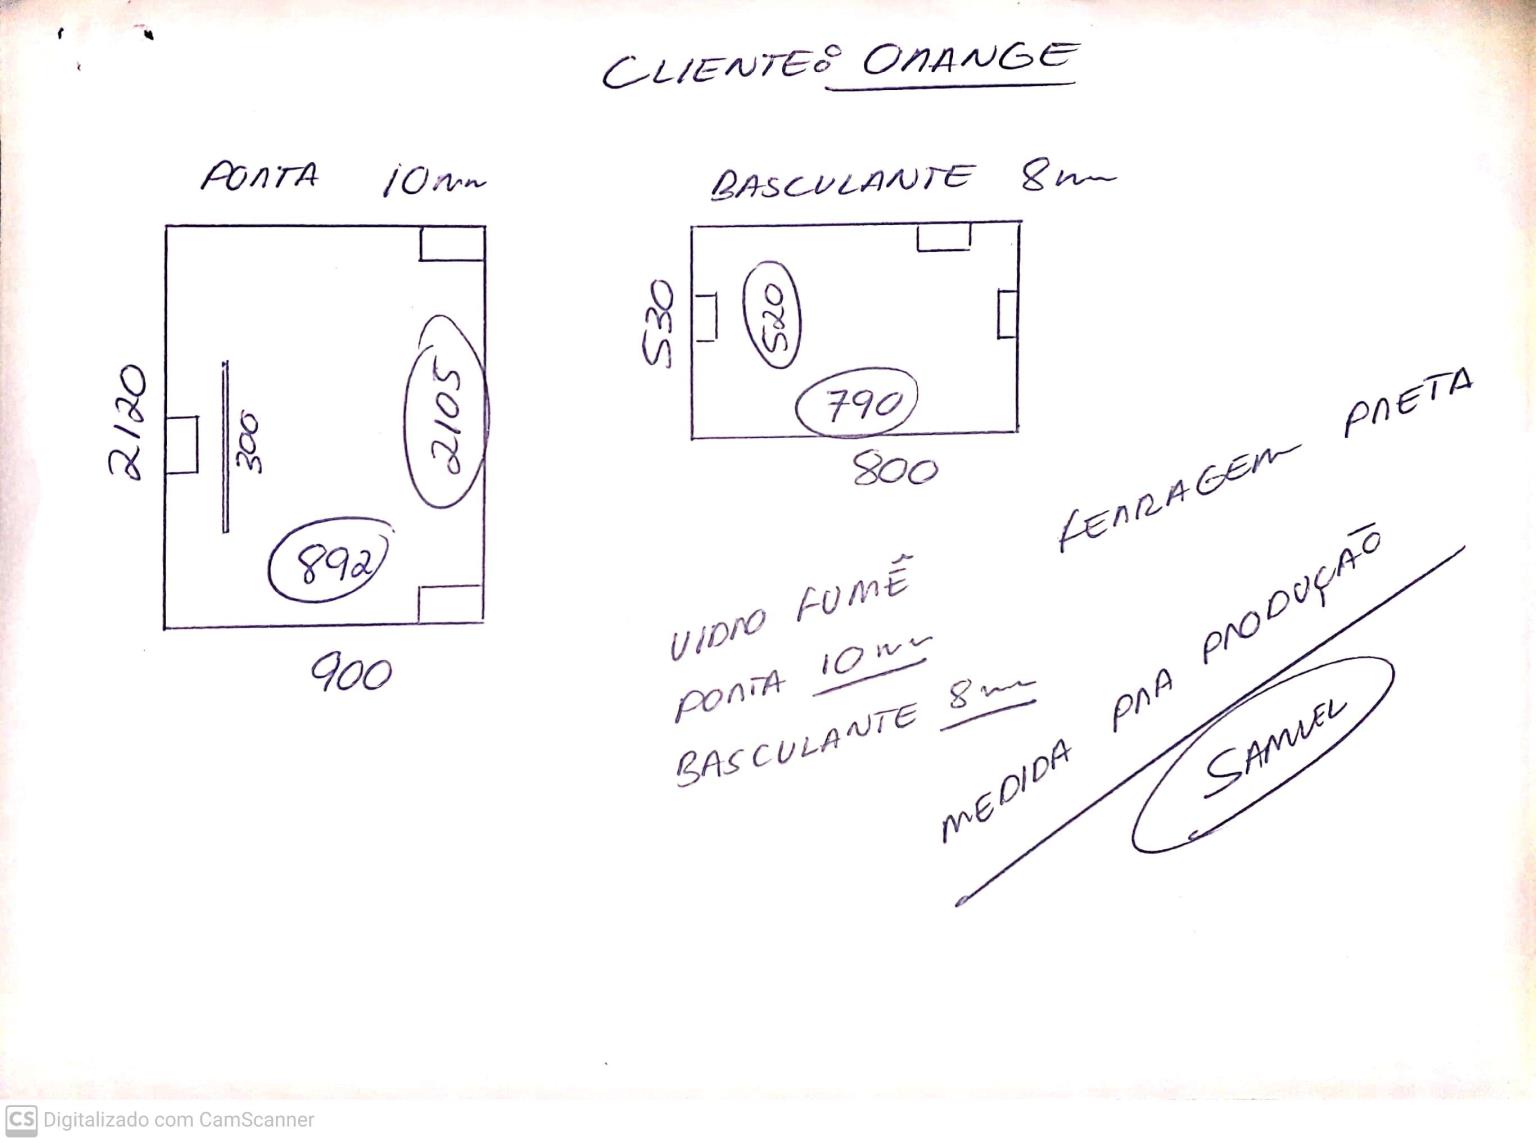 CLIENTE: ORANGE
PORTA 10mm
BASCULANTE 8mm
2120
300
2105
892
900
530
520
790
800
FERRAGEM PRETA
VIDRO FUMÊ
PORTA 10mm
BASCULANTE 8mm
MEDIDA PRA PRODUÇÃO
SAMUEL
CS Digitalizado com CamScanner